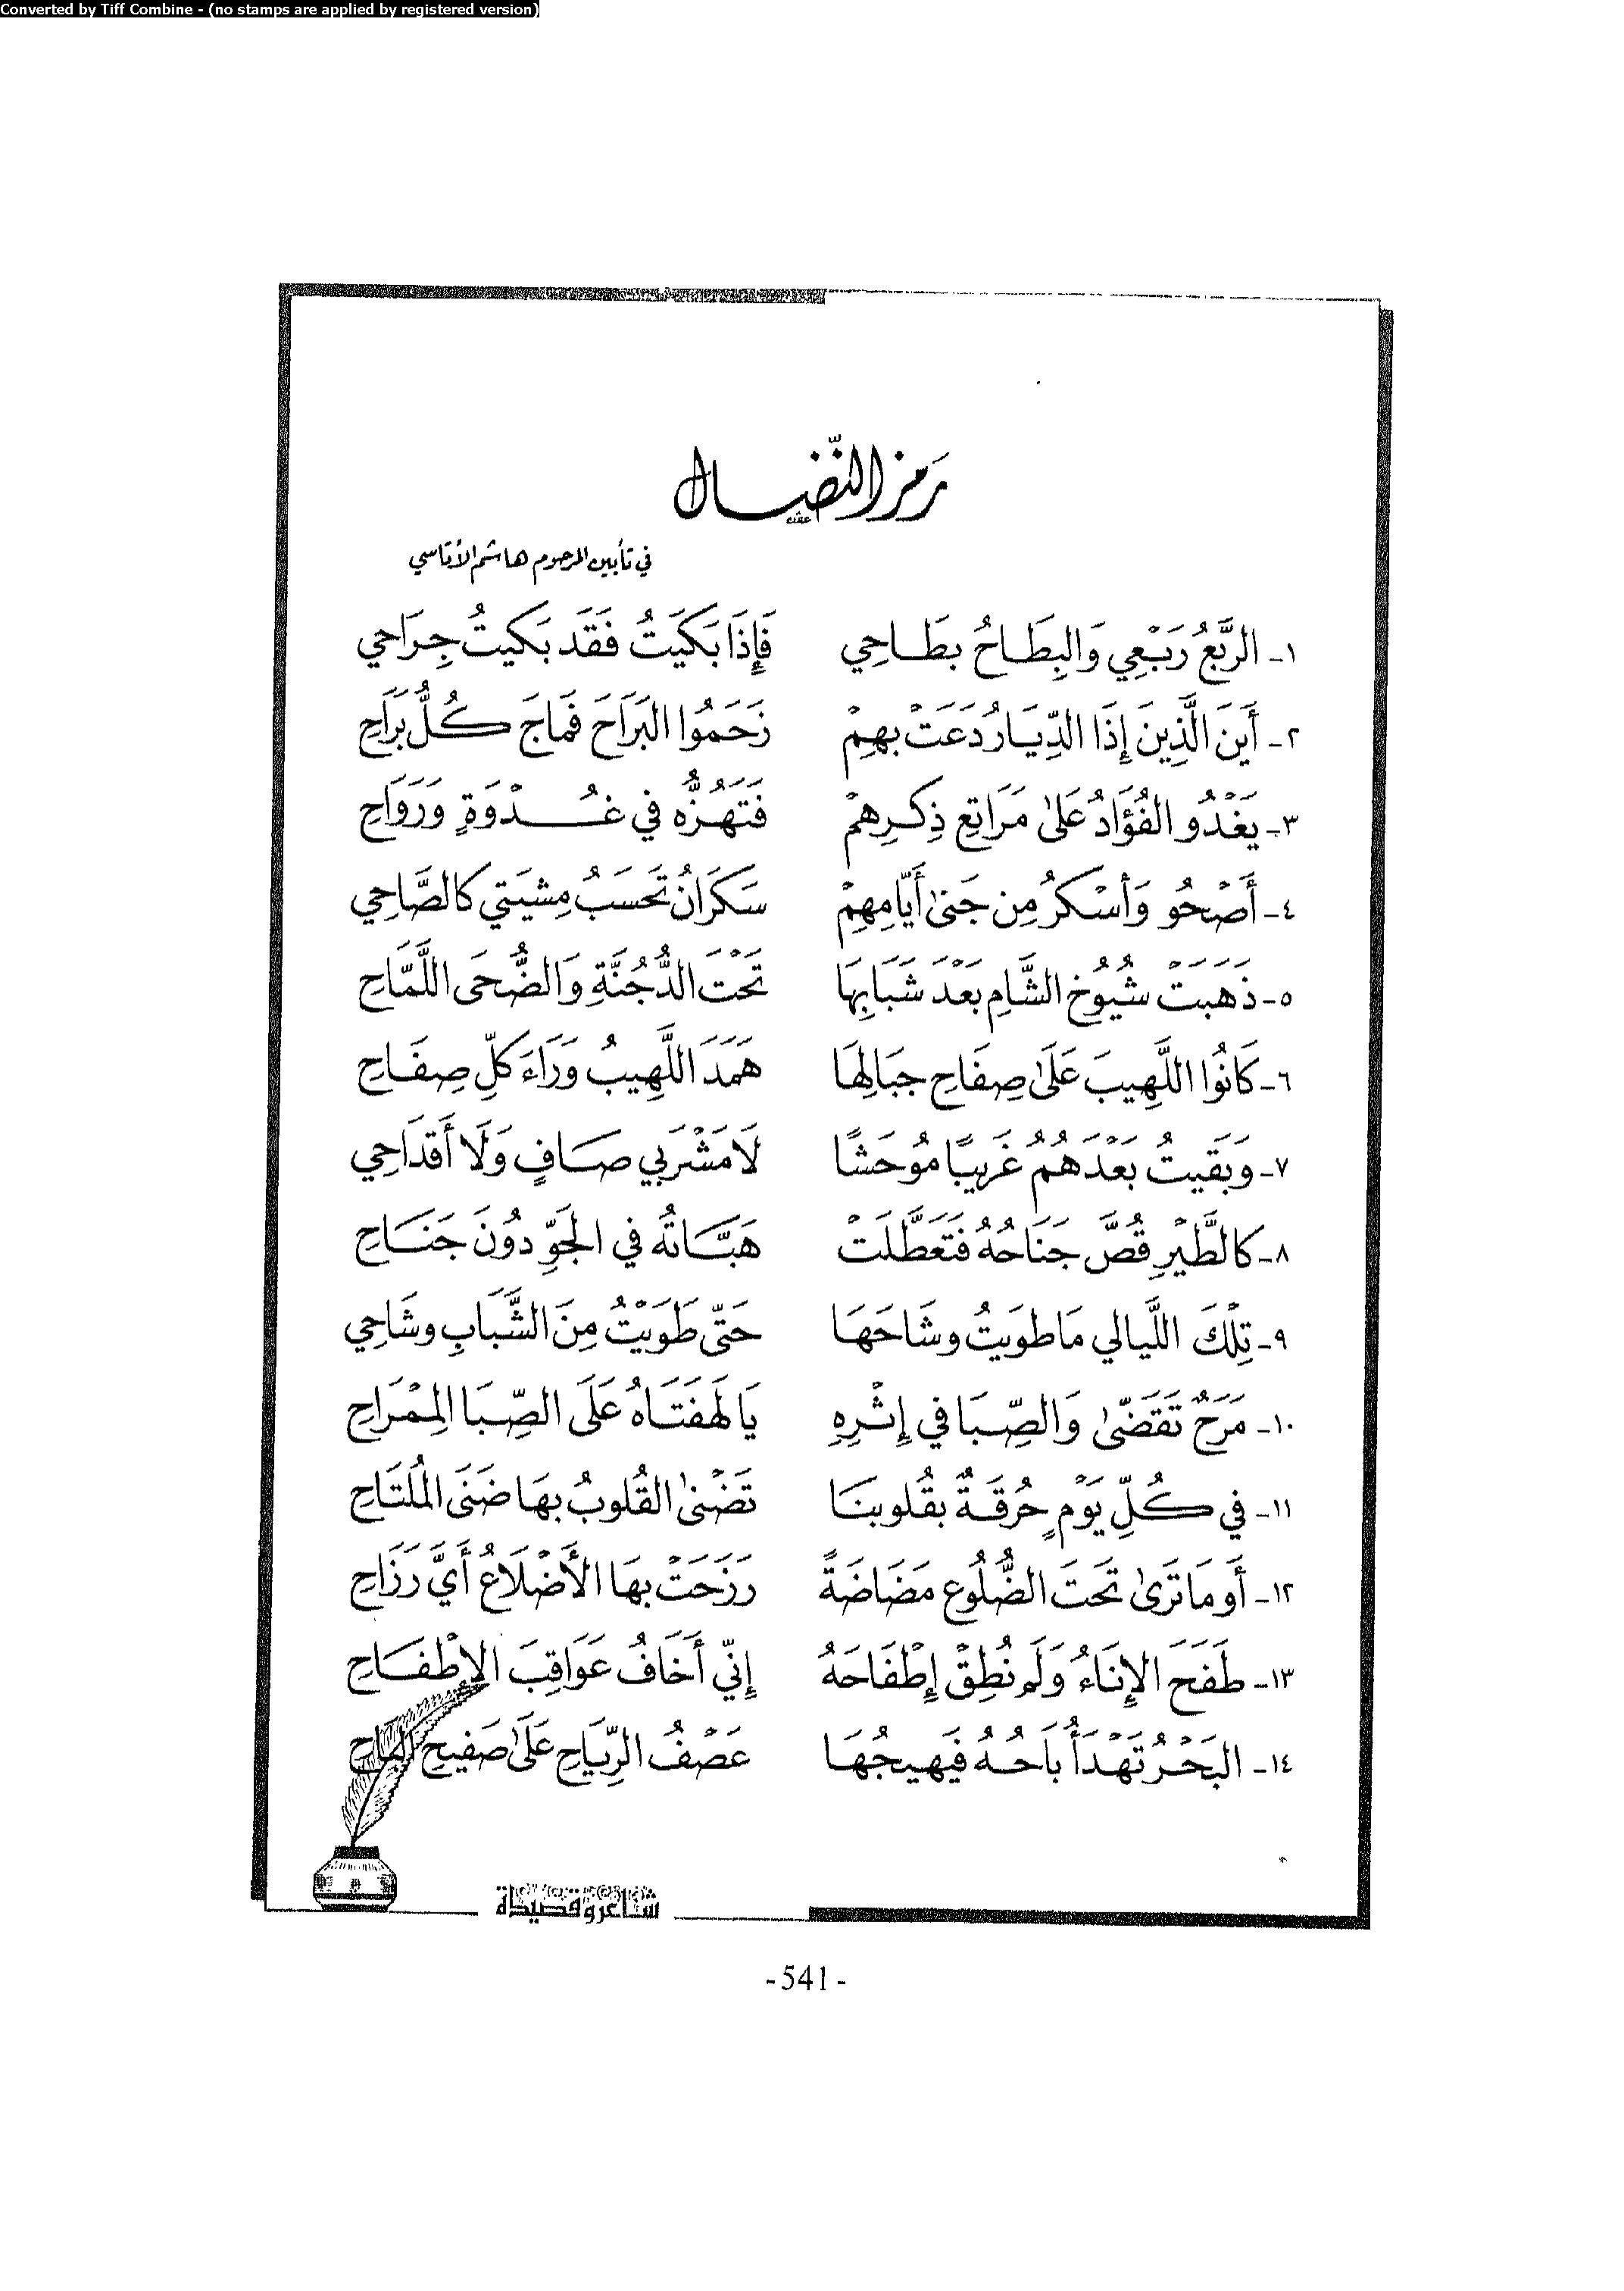 Converted by Tiff Combine - (no stamps are applied by registered version)
رمز النّضال
في تأبين المرحوم هاشم الأتاسي
١- الرَّبْعُ رَبْعِي وَالبِطَاحُ بِطَاحِي فَإِذَا بَكَيَتُ فَقَد بَكيتُ جِرَاحي
٢- أَينَ الَّذِينَ إِذَا الدِّيَارُ دَعَتْ بهِمْ زَحَمُوا البَرَاحَ فَماجَ كُلُّ بَرَاحِ
٣- يَغْدُو الفُؤَادُ عَلىٰ مَرَاتِعِ ذِكرِهمْ فَتَهُزُّه في غُدْوَةٍ وَرَوَاحِ
٤- أَصْحُو وَأَسْكرُ مِن جَنىٰ أَيَّامِهِمْ سَكرَانُ تَحسَبُ مِشيَتي كالصَّاحِي
٥- ذَهَبَتْ شُيُوخُ الشَّامِ بَعْدَ شَبَابِهَا تَحْتَ الدُّجُنَّةِ وَالضُّحَى اللَّمَّاحِ
٦- كَانُوا اللَّهِيبَ عَلَىٰ صِفَاحِ جبَالِهَا هَمَدَ اللَّهِيبُ وَرَاءَ كلِّ صِفَاحِ
٧- وبَقيتُ بعْدَهُمُ غَريبًا مُوحَشًا لَا مَشْرَبي صَافٍ وَلَا أَقدَاحِي
٨- كالطَّيْرِ قُصَّ جنَاحُهُ فَتَعَطَّلَتْ هَبَّاتُهُ في الجَوِّ دُونَ جَنَاحِ
٩- تِلْكَ اللَّيالي مَا طوَيتُ وشَاحَهَا حَتّى طَوَيْتُ مِنَ الشَّبَابِ وشَاحِي
١٠- مَرَحٌ تَقَضّىٰ وَالصِّبَا في إِثْرِهِ يَا لَهفَتَاهُ عَلَى الصِّبَا المِمْرَاحِ
١١- في كُلِّ يَوْمٍ حُرقَةٌ بقُلوبنَا تَضْنىٰ القُلوبُ بهَا ضَنَى المُلتَاحِ
١٢- أَو مَا تَرىٰ تَحتَ الضُّلُوعِ مَضَاضَةً رَزَحَتْ بهَا الأَضْلَاعُ أَيَّ رَزَاحِ
١٣- طَفَحَ الإِنَاءُ وَلَم نُطِقْ إِطْفَاحَهُ إِنّي أَخَافُ عَوَاقِبَ الإِطْفَاحِ
١٤- البَحْرُ تَهْدَأُ بَاحُهُ فَيهيجُهَا عَصْفُ الرِّيَاحِ عَلىٰ صَفيحِ البَاحِ
شاعر وقصيدة
-541-